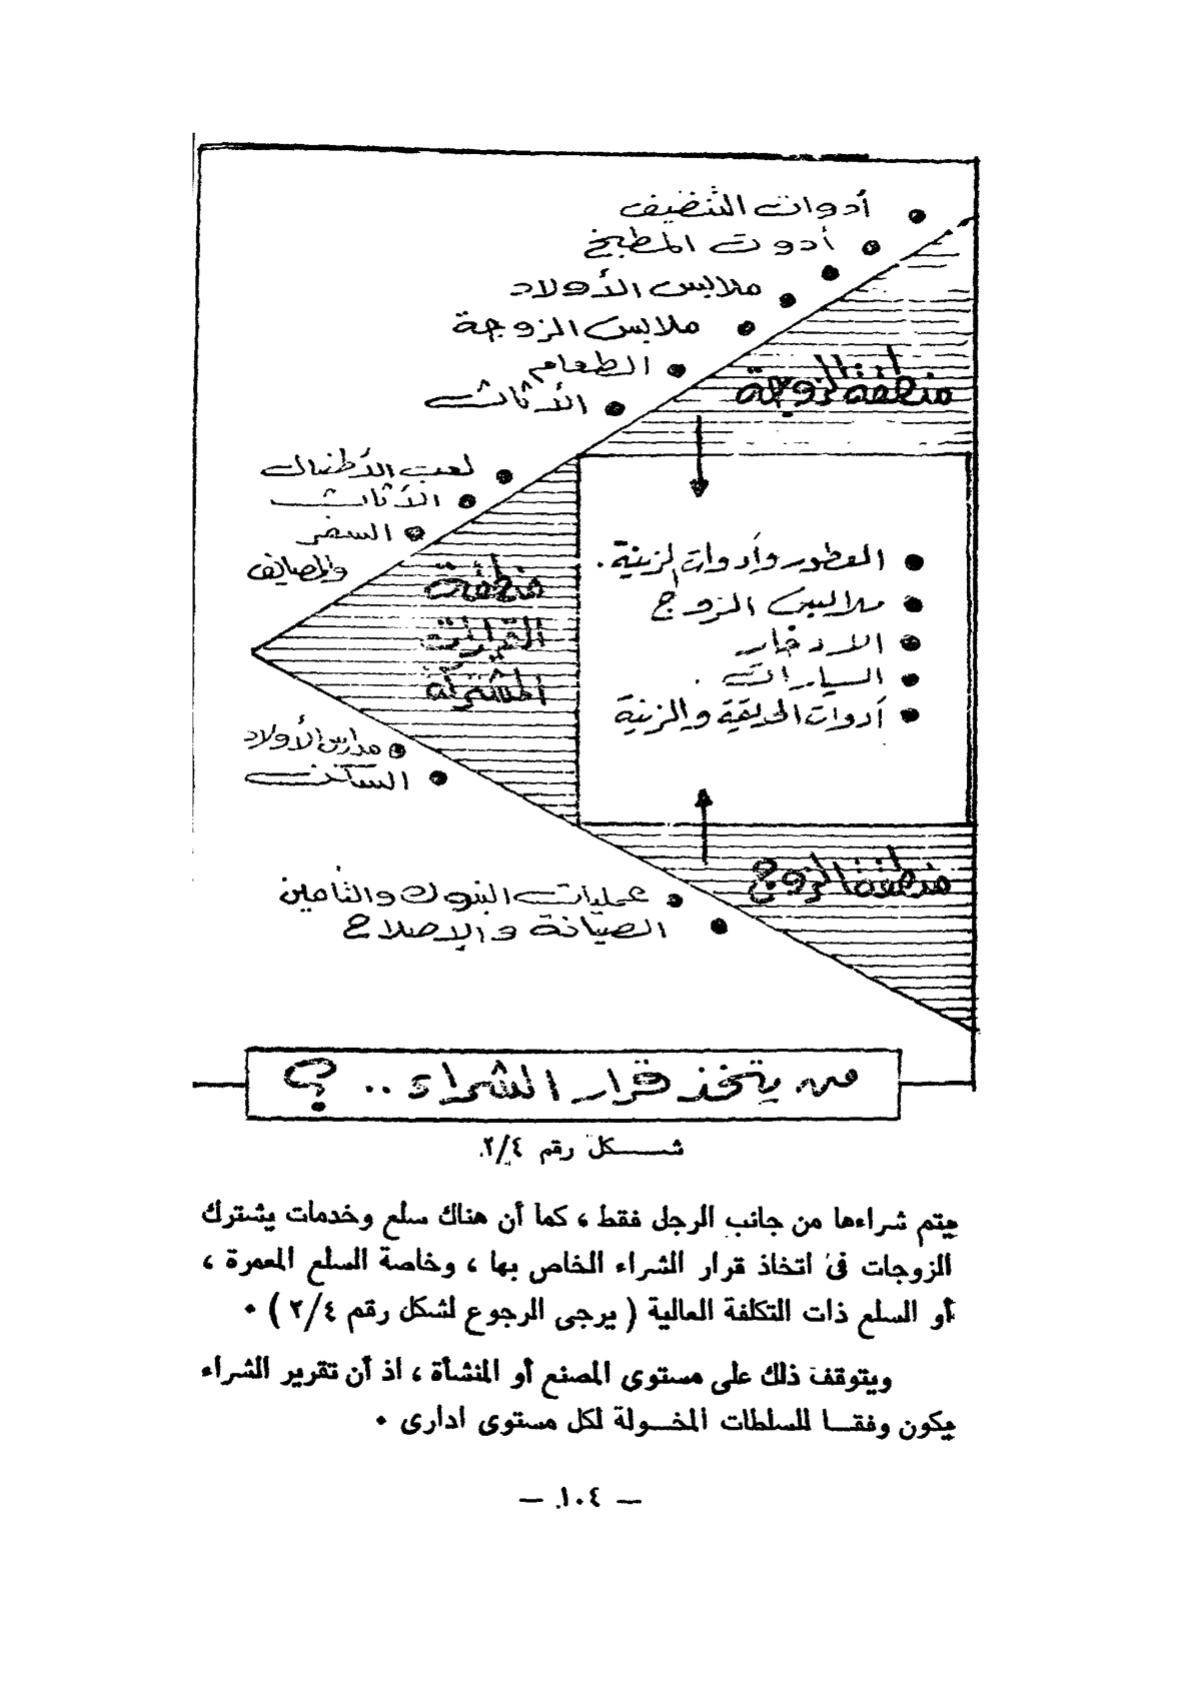 أدوات التنضيف
أدوت المطبخ
ملابس الأولاد
ملابس الزوجة
الطعام
الأثاث
منطقة الزوجة
لعب الأطفال
الأثاث
السفر
والمصايف
منطقة
القرارات
المشتركة
العطور وأدوات لزينة.
ملابس الزوج
الادخار
السيارات.
أدوات الحديقة والزينة
مدارس الأولاد
السكن
منطقة الزوج
عمليات البنوك والتأمين
الصيانة والإصلاح
من يتخذ قرار الشراء .. ؟
شكل رقم ٢/٤
يتم شراءها من جانب الرجل فقط ، كما أن هناك سلع وخدمات يشترك
الزوجات فى اتخاذ قرار الشراء الخاص بها ، وخاصة السلع المعمرة ،
أو السلع ذات التكلفة العالية ( يرجى الرجوع لشكل رقم ٢/٤ ) ٠
ويتوقف ذلك على مستوى المصنع أو المنشأة ، اذ أن تقرير الشراء
يكون وفقا للسلطات المخولة لكل مستوى ادارى ٠
— ١٠٤ —